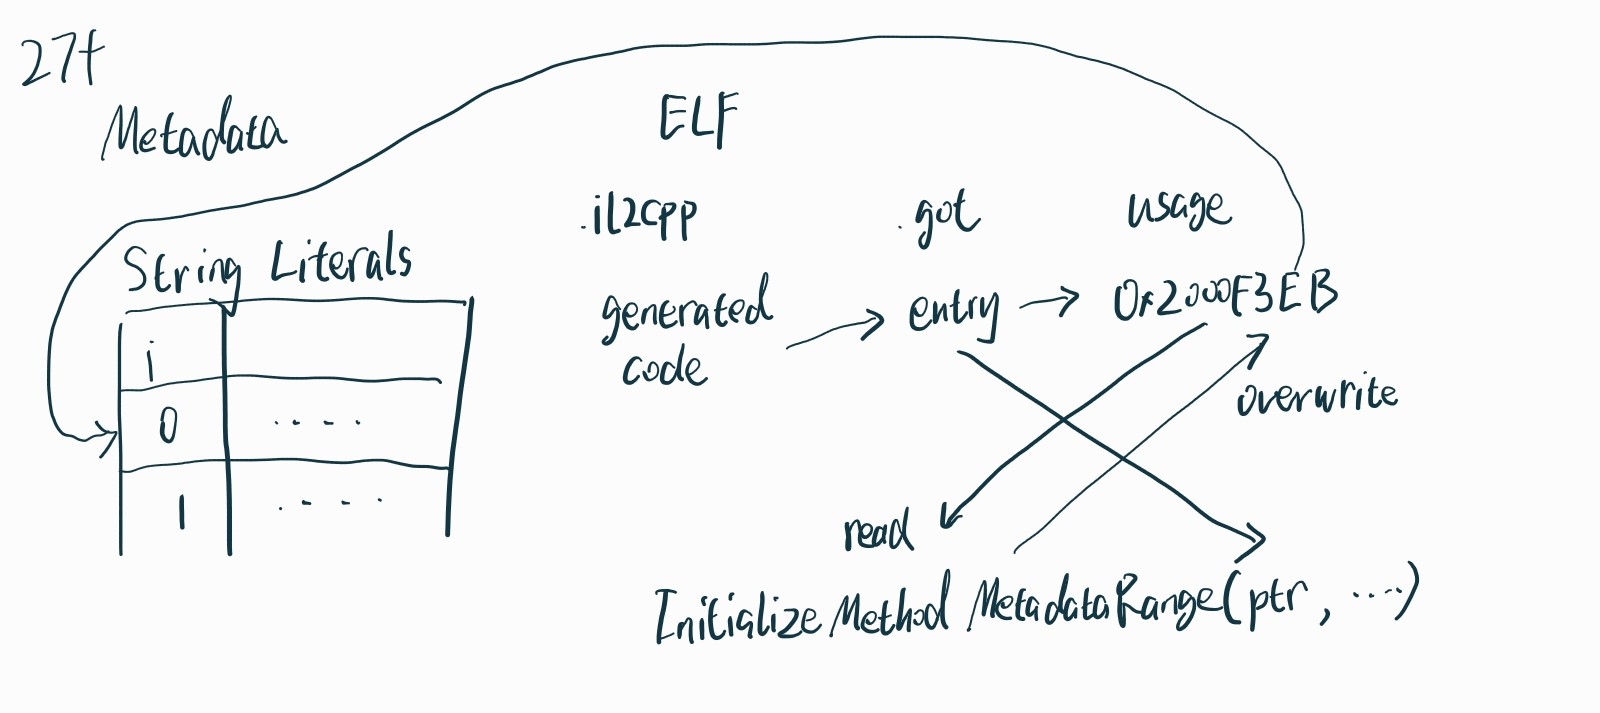 27+
Metadata
ELF
.il2cpp
.got
usage
String Literals
generated
code
entry
0x2000F3EB
i
0 ....
1 ....
overwrite
read
Initialize Method MetadataRange(ptr, ....)